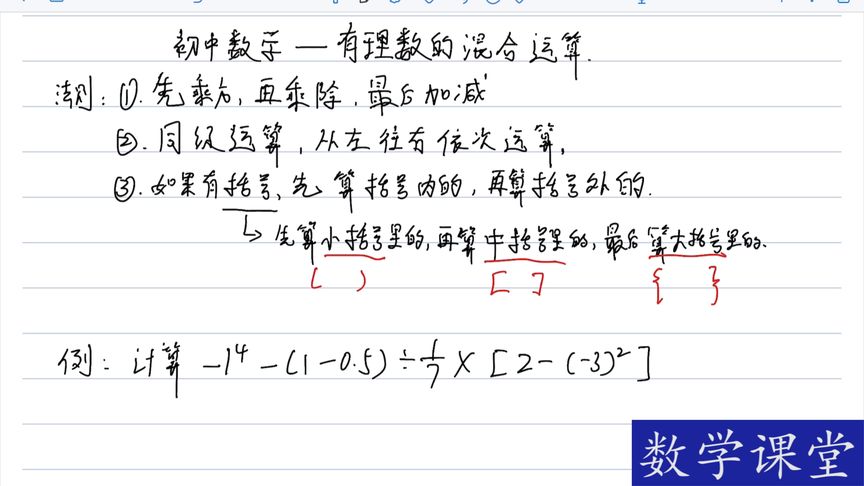 初中数学 — 有理数的混合运算.
法则：①. 先乘方，再乘除，最后加减
②. 同级运算，从左往右依次运算，
③. 如果有括号、先算括号内的，再算括号外的.
↳ 先算小括号里的，再算中括号里的，最后算大括号里的.
( ) [ ] { }
例：计算 -1⁴ - (1 - 0.5) ÷ 1/7 × [2 - (-3)²]
数学课堂